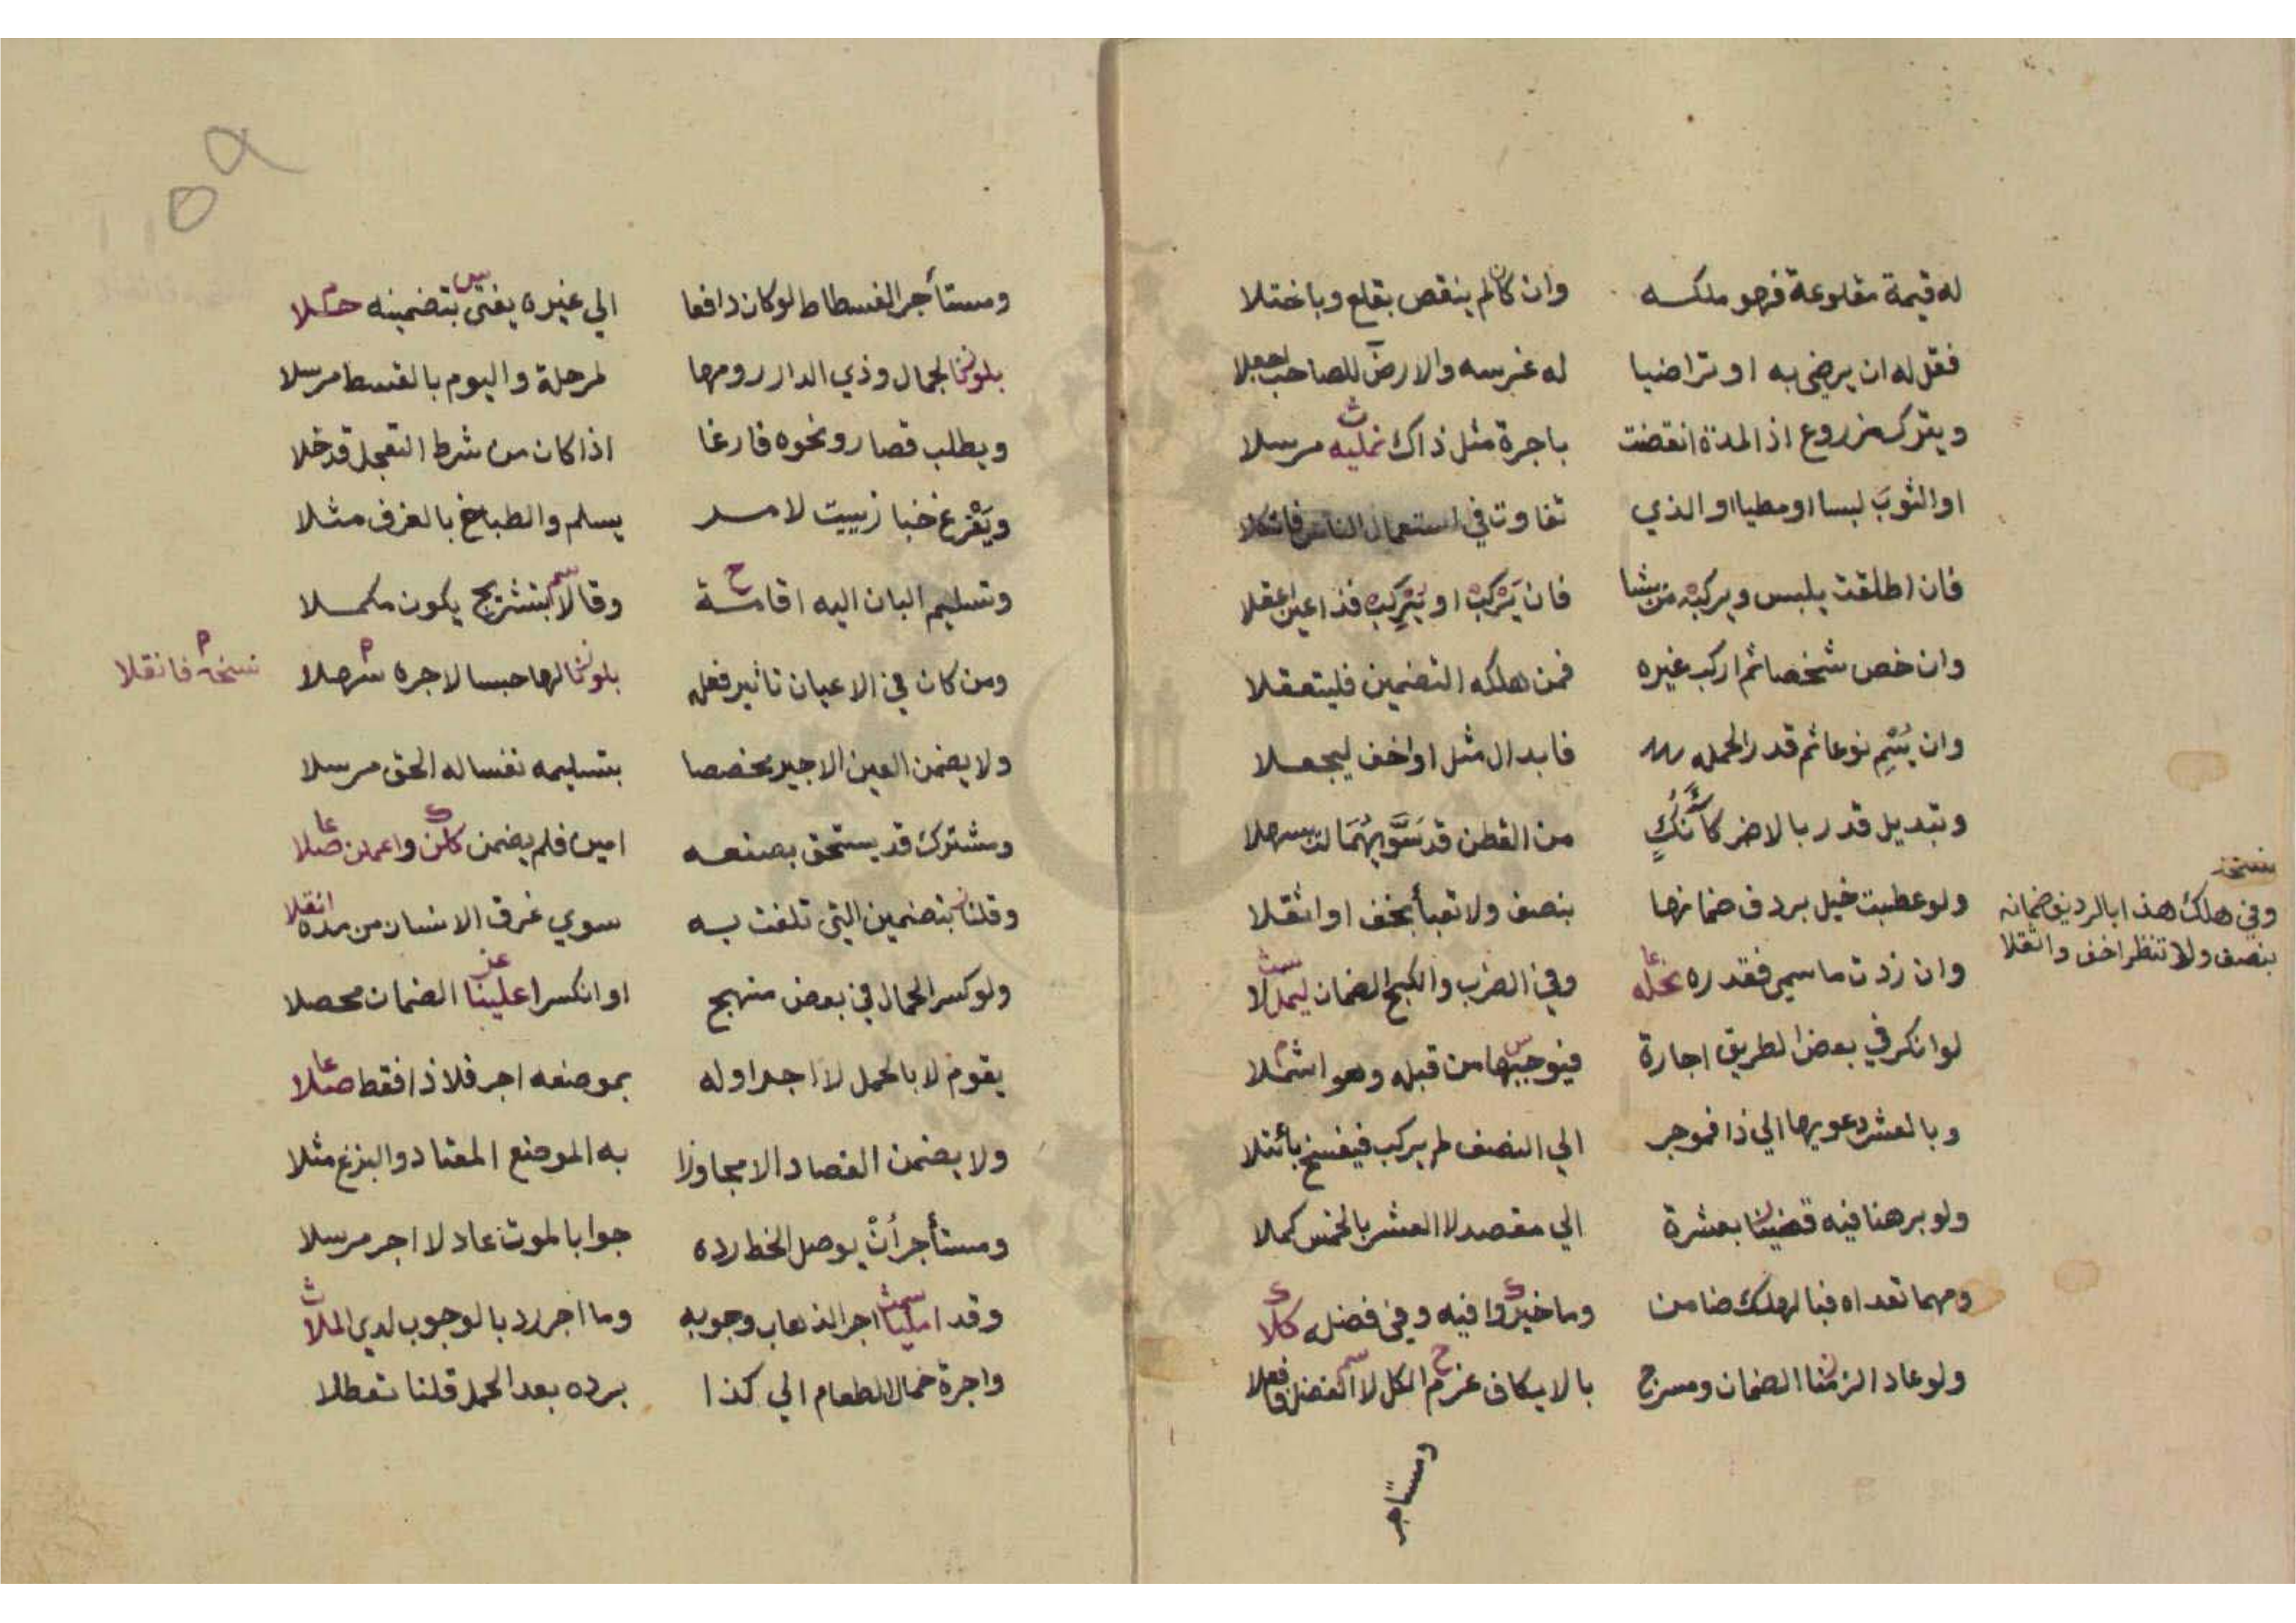 له قيمة مقلوعة فهو ملكه وان كان لم ينقص بقلع وباختلا
فقل له ان يرضى به او تراضيا له غرسه والارض للصاحب اجعلا
ويترك مزروع اذ المدة انقضت باجرة مثل ذاك نمليه مرسلا
او الثوب لبسا او مطيا او الذي تفاوت في استعمال الناس
فان اطلقت يلبس ويركب من يشا فان يركب او يركب فذا عين اعقلا
وان خص شخصا ثم اركب غيره فمن هلكه التضمين فليتعقلا
وان يسم نوعا ثم قدر الحمله فابدال مثل او اخف ليجعلا
وتبديل قدر بالاضر كآنك من القطن قد سمويهما لتسهلا
ولو عطبت خيل بردف ضمانها بنصف ولا تعبأ بخف او اثقلا
نسخه
وفي هلك هذا بالرديف ضمانه
بنصف ولا تنظر اخف واثقلا
وان زدت ما سمي فقدره نحله وفي الضرب والكبح الضمان
لو انكر في بعض الطريق اجارة فيوجبها من قبله وهو اشملا
وبالعشر دعويها الي ذا فموجر الي النصف لم يركب فيفسخ
ولو برهنا فيه قضينا بعشرة الي مقصد لا العشر بالخمس كملا
ومهما تعداه فبالهلك ضامن وما خيروا فيه وفي فضله كلا
ولو عاد الزمنا الضمان ومسرج بالا يكاف غرم الكل لا الفضل فافعلا
ومستاجر
ومستأجر الفسطاط لو كان دافعا الي غيره يفتى بتضمينه حملا
بلونا لجمال وذي الدار رومها لمرحلة واليوم بالقسط مرسلا
ويطلب قصار ونحوه فارغا اذا كان من شرط التعجل قد خلا
ويفرغ خباز ببيت لامر يسلم والطباخ بالغرف مثلا
وتسليم البان اليه اقامة وقالا بتشريج يكون مكملا
ومن كان في الاعيان تاثير فعله بلونا لها حبسا لاجره سهلا
نسخه فانقلا
ولا يضمن العين الاجير مخصصا بتسليمه نفسا له الحق مرسلا
ومشترك قد يستحق بصنعه امين فلم يضمن كلن واعملن صلا
وقلنا بتضمين التي تلفت به سوي غرق الانسان من مده انقلا
ولو كسر الحمال في بعض منهج او انكسرا علينا الضمان محصلا
يقوم لا بالحمل لا اجرا وله بموضعه اجر فلا ذا فقط صلا
ولا يضمن الفصاد الا مجاوزا به الموضع المعتاد والبزغ مثلا
ومستأجر أن يوصل الخط رده جوابا لموت عاد لا اجر مرسلا
وقد املينا اجر الذهاب وجوبه وما اجر رد بالوجوب لدي الملا
واجرة حمال الطعام الي كذا برده بعد الحمل قلنا تعطلا